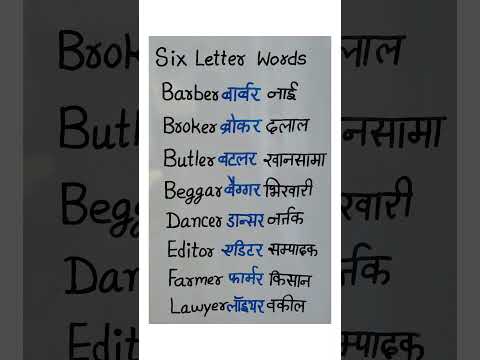 Six Letter Words
Barber बार्बर नाई
Broker ब्रोकर दलाल
Butler बटलर खानसामा
Beggar बैग्गर भिखारी
Dancer डान्सर नर्तक
Editor एडिटर सम्पादक
Farmer फार्मर किसान
Lawyer लॉइयर वकील